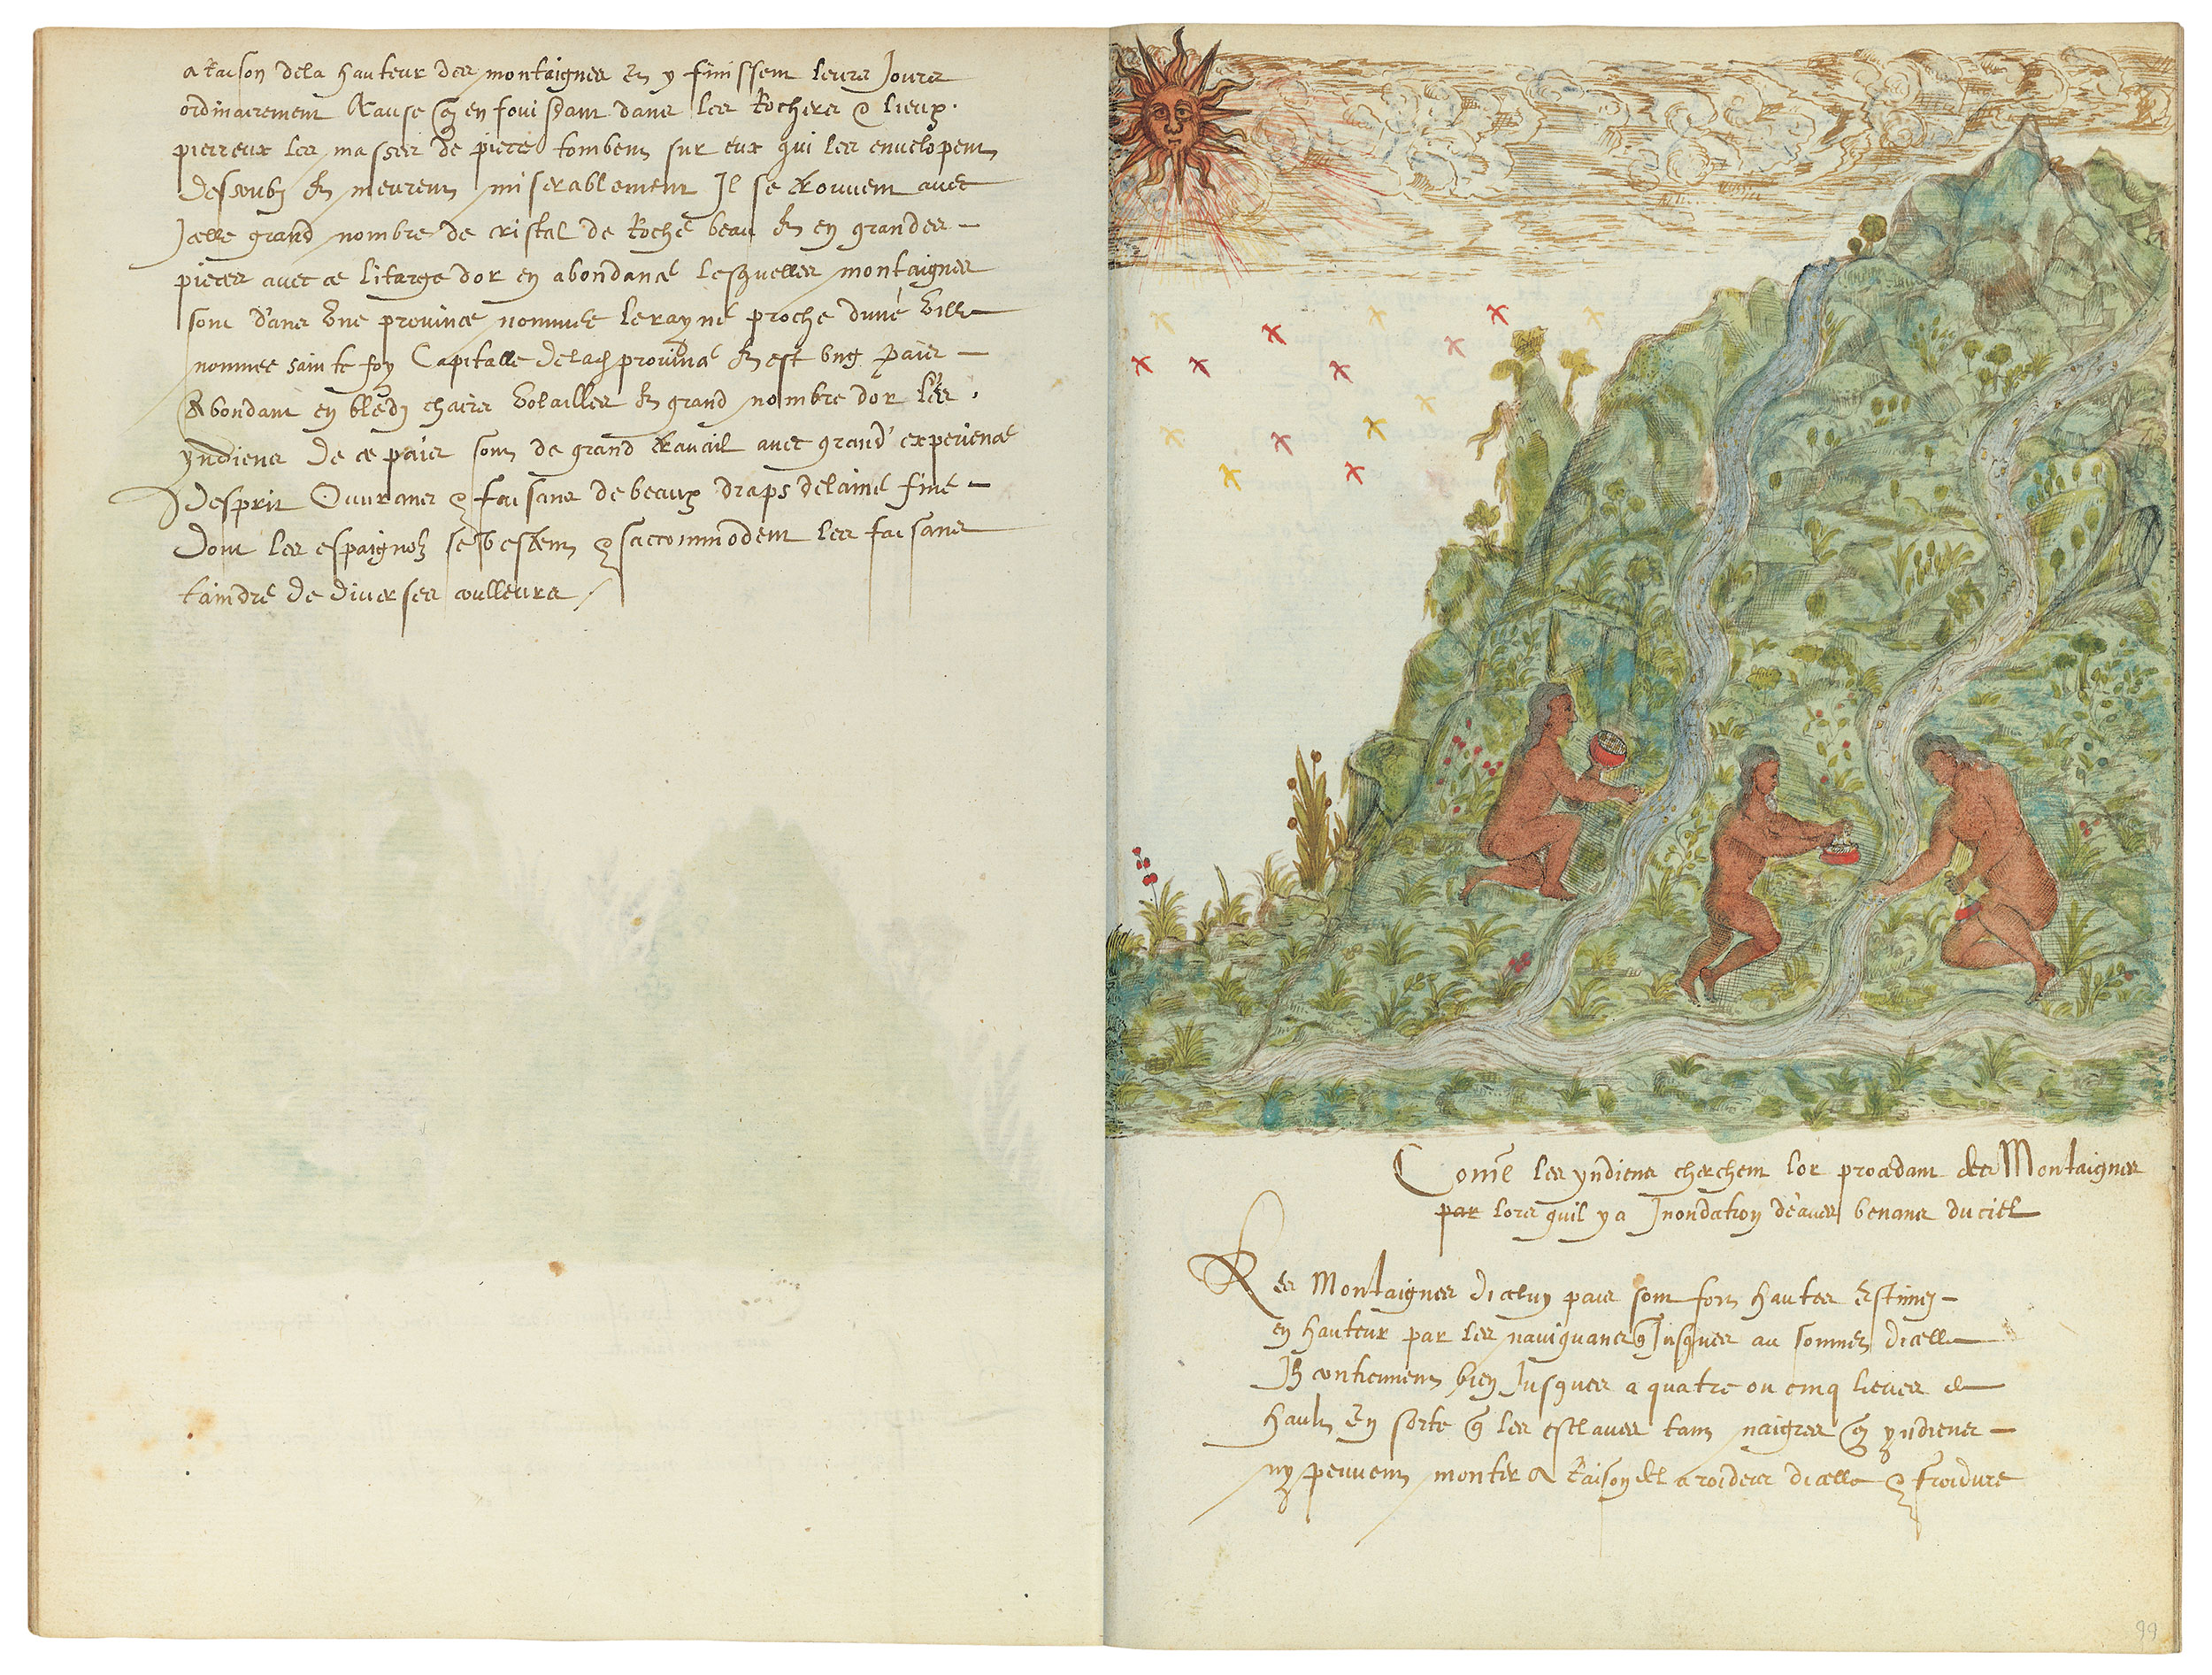 a Raison dela hauteur des montaignes Et y finissent leurs Jours
ordinairement A cause q̃ en fouissant dans les Rochers & lieux
pierreux les masses de pierre tombent sur eux qui les envelopent
dessoubz Et meurent miserablement Il se trouvent avec
Icelle grand nombre de cristal de Roche beau Et en grandes
pieces avec ce litarge dor en abondance lesquelles montaignes
sont dans Une province nommee lerayne proche dune Ville
nommee sainte foy Capitalle delad province Et est Ung pais
Abondant en bledz chairs Volailles Et grand nombre dor les
yndiens de ce pais sont de grand travail avec grand experience
desprit Ouvrans & faisans de beaux draps de laine fine
Dont les espaignolz se vestent & saccommodent les faisans
taindre de diverses coulleurs
Com̃e les yndiens cherchent lor procedant des Montaignes
par lors quil y a Inondation deaues venans du ciel
Les Montaignes dicelluy pais sont fort hautes Estimez
en hauteur par les naviguans q̃ Jusques au sommet dicelle
Ilz contiennent bien Jusques a quatre ou cinq lieues de
hault En sorte q̃ les esclaves tant naigres q̃ yndiens
ny peuvent monter A Raison de la roideur dicelle & froidure
99